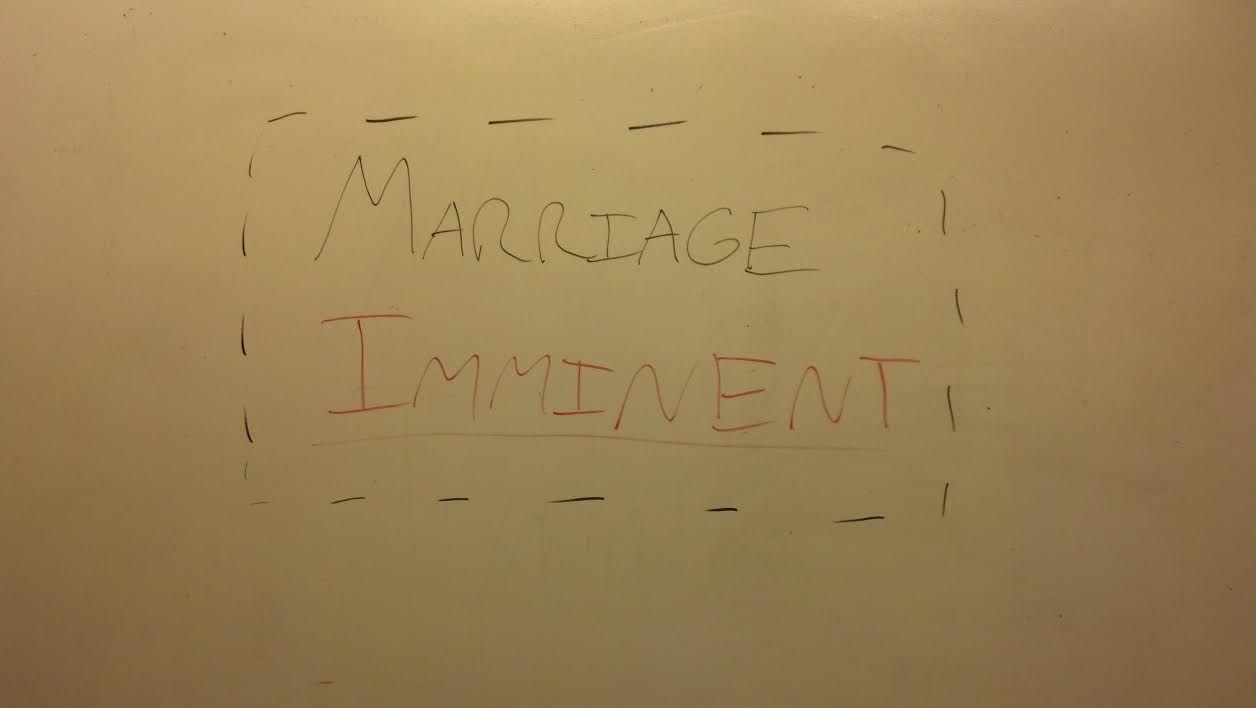 MARRIAGE
IMMINENT